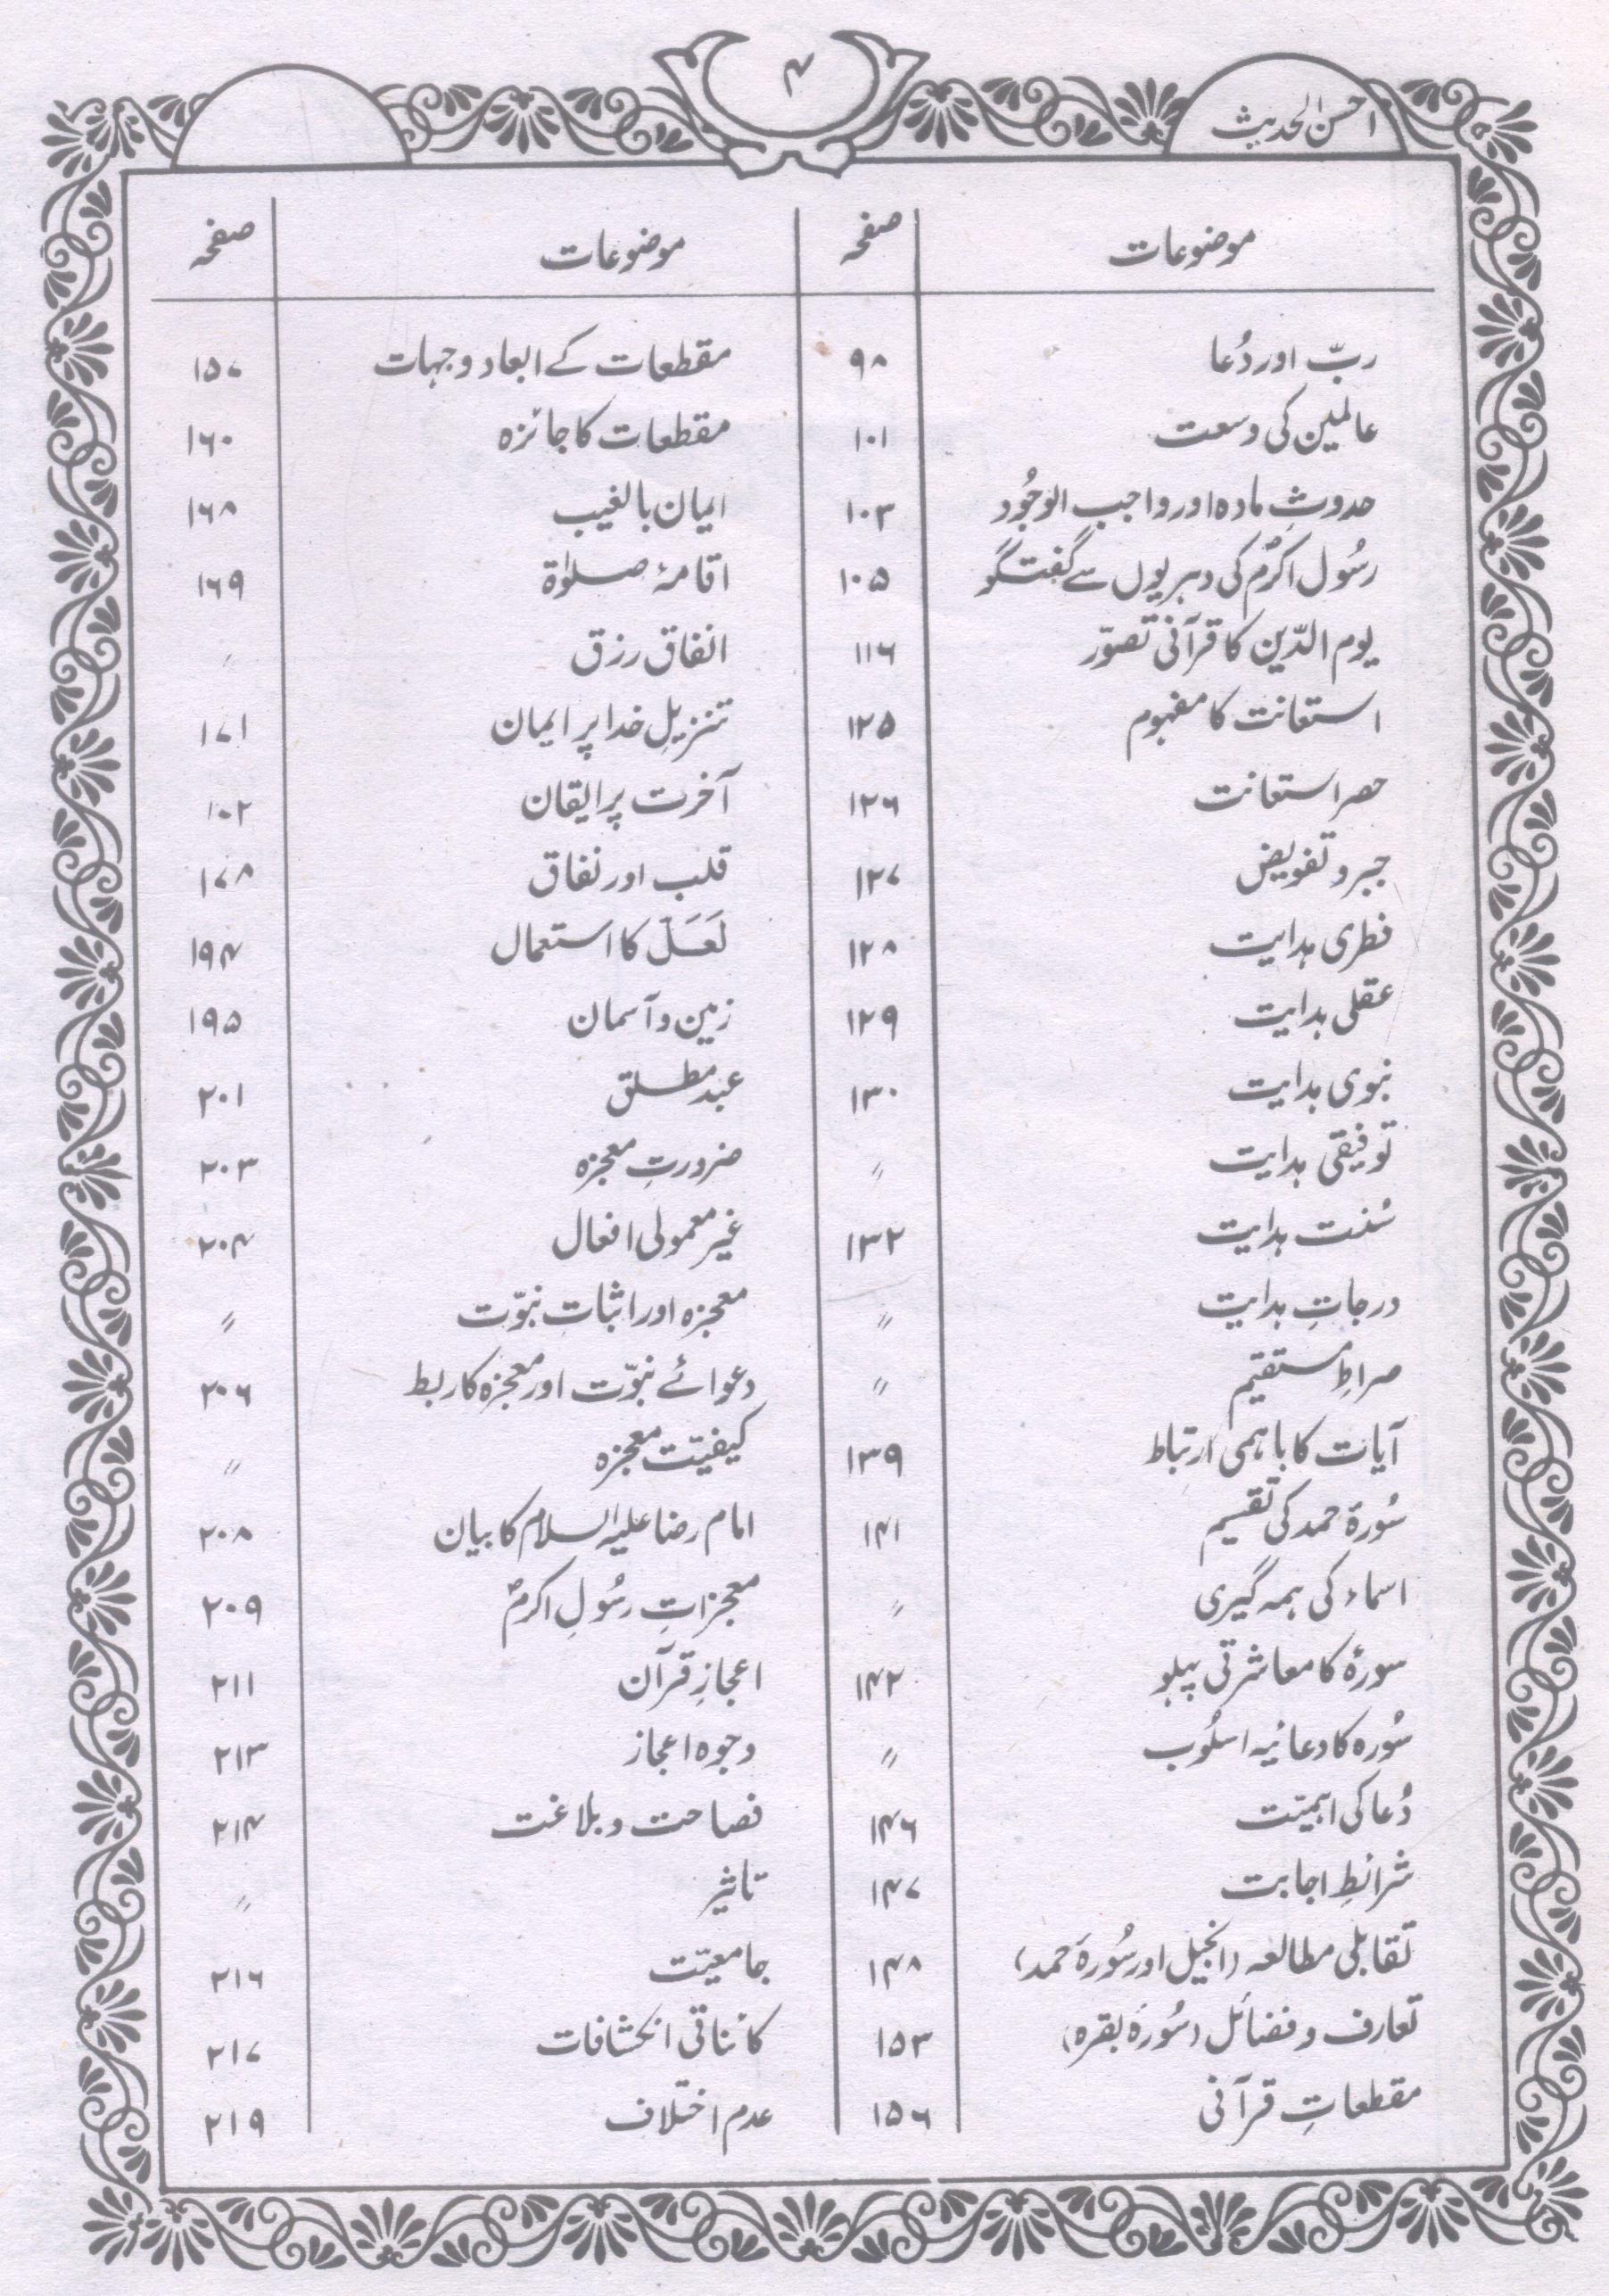 احسن الحدیث
۴
موضوعات صفحہ موضوعات صفحہ
ربّ اور دُعا ۹۸ مقطعات کے ابعاد و جہات ۱۵۷
عالمین کی وسعت ۱۰۱ مقطعات کا جائزہ ۱۶۰
حدوثِ مادہ اور واجب الوجُود ۱۰۳ ایمان بالغیب ۱۶۸
رسُول اکرمؐ کی دہریوں سے گفتگو ۱۰۵ اقامۂ صلوٰۃ ۱۶۹
یوم الدّین کا قرآنی تصوّر ۱۱۶ انفاق رزق 〃
استعانت کا مفہوم ۱۲۵ تنزیلِ خدا پر ایمان ۱۷۱
حصر استعانت ۱۲۶ آخرت پر ایقان
جبر و تفویض ۱۲۷ قلب اور نفاق ۱۷۸
فطری ہدایت ۱۲۸ لَعَلَّ کا استعمال ۱۹۴
عقلی ہدایت ۱۲۹ زمین و آسمان ۱۹۵
نبوی ہدایت ۱۳۰ عبد مطلق ۲۰۱
توفیقی ہدایت 〃 ضرورتِ معجزہ ۲۰۳
سُنت ہدایت ۱۳۲ غیر معمولی افعال ۲۰۴
درجاتِ ہدایت 〃 معجزہ اور اثباتِ نبوّت 〃
صراطِ مستقیم 〃 دعوائے نبوّت اور معجزہ کا ربط ۲۰۶
آیات کا باہمی ارتباط ۱۳۹ کیفیّت معجزہ 〃
سُورۂ حمد کی تقسیم ۱۴۱ امام رضا علیہ السلام کا بیان ۲۰۸
اسماء کی ہمہ گیری 〃 معجزاتِ رسُولِ اکرمؐ ۲۰۹
سورۂ کا معاشرتی پہلو ۱۴۲ اعجازِ قرآن ۲۱۱
سُورہ کا دعائیہ اسلُوب 〃 وجوہ اعجاز ۲۱۳
دُعا کی اہمیّت ۱۴۶ فصاحت و بلاغت ۲۱۴
شرائطِ اجابت ۱۴۷ تاثیر 〃
تقابلی مطالعہ (انجیل اور سُورۂ حمد) ۱۴۸ جامعیّت ۲۱۶
تعارف و فضائل (سُورۂ بقرہ) ۱۵۳ کائناتی انکشافات ۲۱۷
مقطعاتِ قرآنی ۱۵۶ عدم اختلاف ۲۱۹